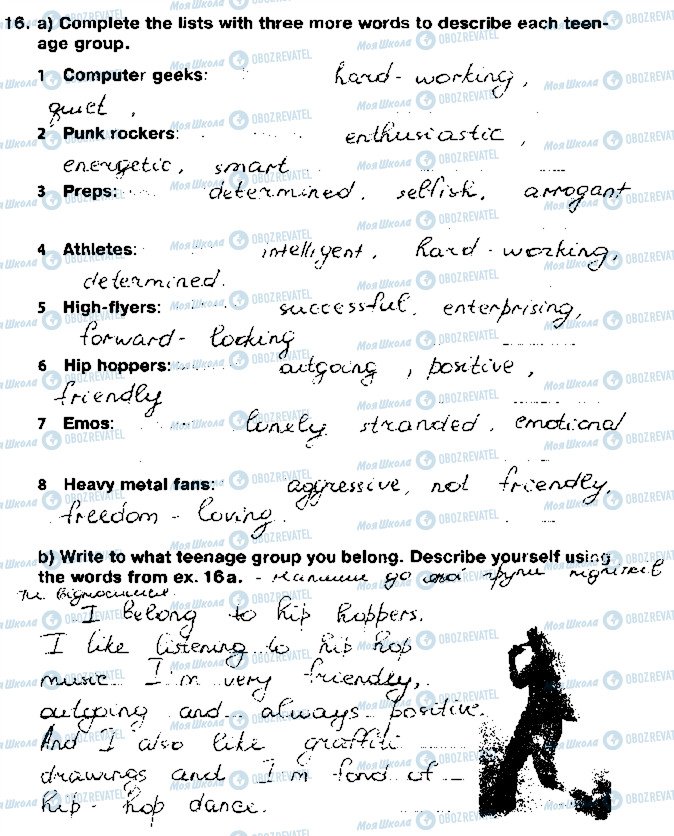 16. a) Complete the lists with three more words to describe each teen-
age group.
1 Computer geeks: hard-working,
quiet,
2 Punk rockers: enthusiastic,
energetic, smart
3 Preps: determined, selfish, arrogant
4 Athletes: intelligent, hard-working,
determined.
5 High-flyers: successful, enterprising,
forward-looking
6 Hip hoppers: outgoing, positive,
friendly
7 Emos: lonely, stranded, emotional
8 Heavy metal fans: aggressive, not friendly,
freedom-loving.
b) Write to what teenage group you belong. Describe yourself using
the words from ex. 16a. - Напиши до якої групи підлітків
ти відносишся.
I belong to hip hoppers.
I like listening to hip hop
music. I'm very friendly,
outgoing and always positive.
And I also like graffiti
drawings and I'm fond of
hip-hop dance.
Моя Школа OBOZREVATEL